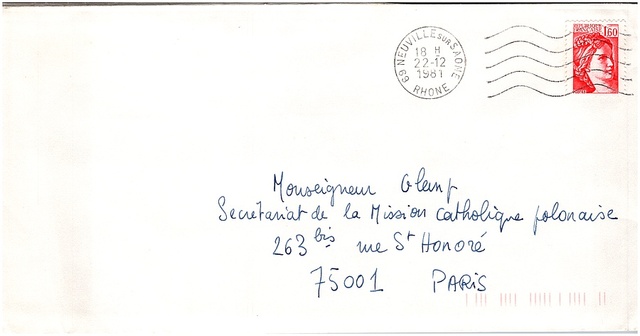 69 NEUVILLE SUR SAONE
18 H
22-12
1981
RHONE
1,60
Monseigneur Glemp
Secrétariat de la Mission catholique polonaise
263 bis rue St Honoré
75001 PARIS